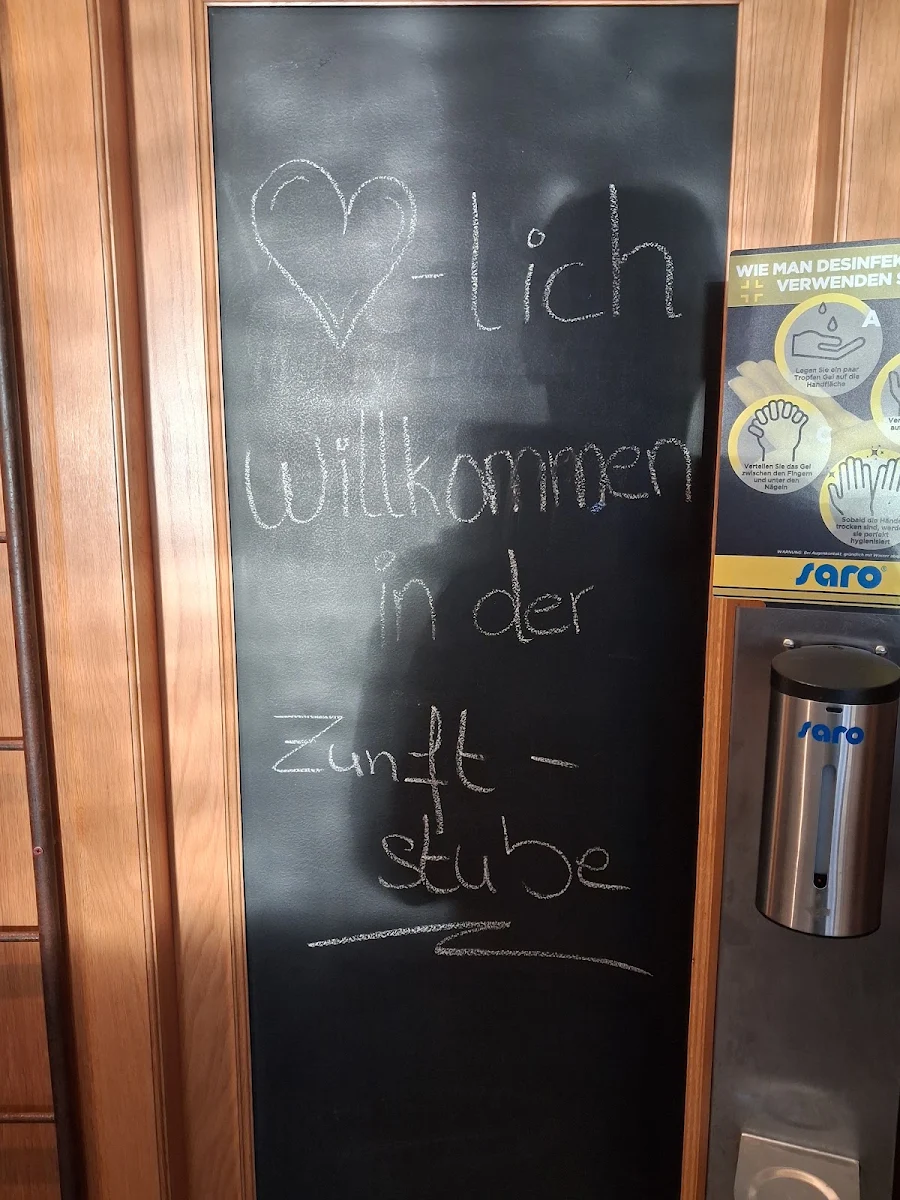 ♡-lich
Willkommen
in der
Zunft-
stube
WIE MAN DESINFEK
VERWENDEN S
A
Legen Sie ein paar
Tropfen Gel auf die
Handfläche
C
Verteilen Sie das Gel
zwischen den Fingern
und unter den
Nägeln
Sobald die Hände
trocken sind, werde
sie perfekt
hygienisiert
WARNUNG: Bei Augenkontakt gründlich mit Wasser
saro
saro